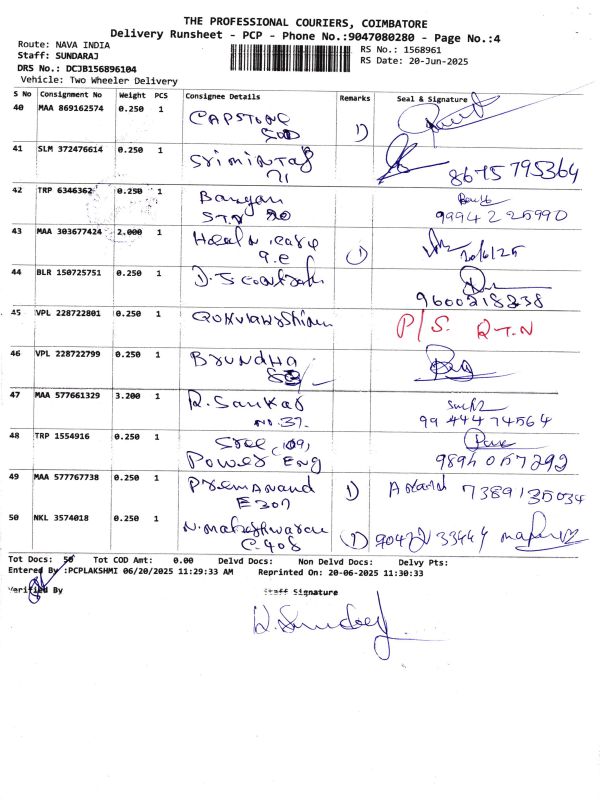 THE PROFESSIONAL COURIERS, COIMBATORE
Delivery Runsheet - PCP - Phone No.:9047080280 - Page No.:4
Route: NAVA INDIA
Staff: SUNDARAJ
DRS No.: DCJB156896104
Vehicle: Two Wheeler Delivery
RS No.: 1568961
RS Date: 20-Jun-2025
S No Consignment No Weight PCS Consignee Details Remarks Seal & Signature
40 MAA 869162574 0.250 1 CAPSTONE
500 1)
41 SLM 372476614 0.250 1 8675795364
71
42 TRP 6346362 0.250 1 Banyan
STN 20 9994225990
43 MAA 303677424 2.000 1 Health care
9.e (1) 20/6/25
44 BLR 150725751 0.250 1 9600218838
45 VPL 228722801 0.250 1 P/S. RTN
46 VPL 228722799 0.250 1 BRUNDHA
47 MAA 577661329 3.200 1 R. Sankar
NO. 37. 9944474564
48 TRP 1554916 0.250 1 Sree (109)
Power ENG 9894057292
49 MAA 577767738 0.250 1 Premanand 1) 7389135034
E 307
50 NKL 3574018 0.250 1 N. Maheshwaran
C. 408 (1)
Tot Docs: 50 Tot COD Amt: 0.00 Delvd Docs: Non Delvd Docs: Delvy Pts:
Entered By :PCPLAKSHMI 06/20/2025 11:29:33 AM Reprinted On: 20-06-2025 11:30:33
Verified By Staff Signature